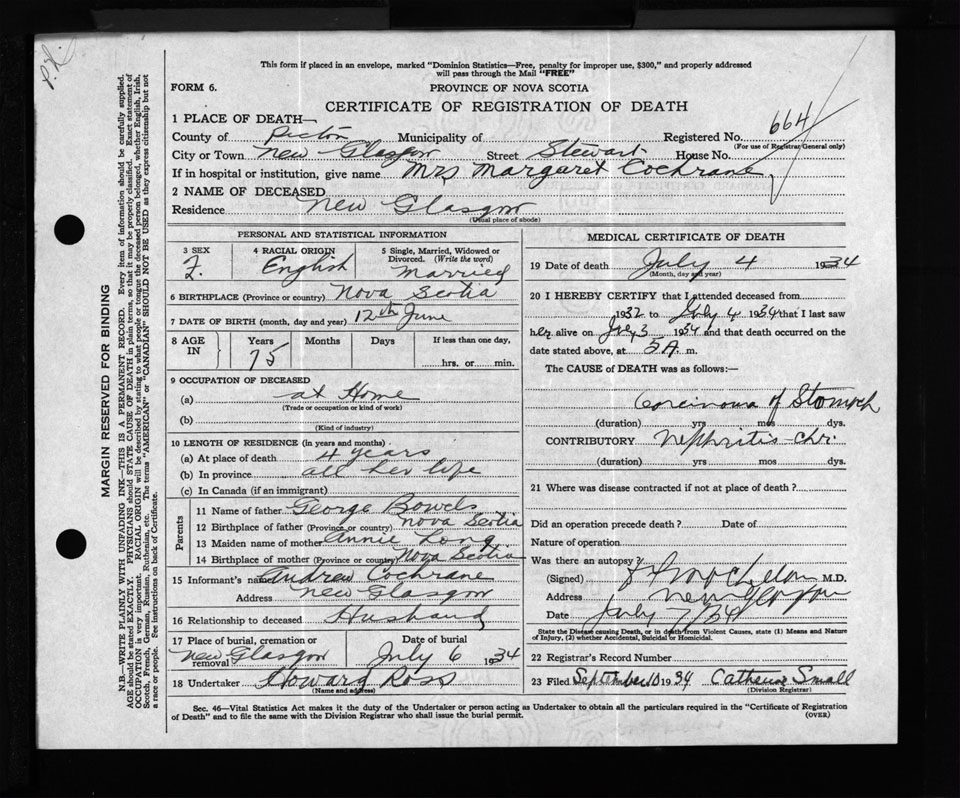 P.L.
This form if placed in an envelope, marked "Dominion Statistics—Free, penalty for improper use, $300," and properly addressed
will pass through the Mail "FREE"
FORM 6.
PROVINCE OF NOVA SCOTIA
CERTIFICATE OF REGISTRATION OF DEATH
1 PLACE OF DEATH—
County of Pictou Municipality of Registered No. 664
(For use of Registrar General only)
City or Town New Glasgow Street Stewart House No.
If in hospital or institution, give name Mrs Margaret Cochrane
2 NAME OF DECEASED
Residence New Glasgow
(Usual place of abode)
PERSONAL AND STATISTICAL INFORMATION
3 SEX 4 RACIAL ORIGIN 5 Single, Married, Widowed or
Divorced. (Write the word)
F. English Married
6 BIRTHPLACE (Province or country) Nova Scotia
7 DATE OF BIRTH (month, day and year) 12th June
8 AGE IN Years Months Days If less than one day,
75 hrs. or min.
9 OCCUPATION OF DECEASED
(a) at Home
(Trade or occupation or kind of work)
(b)
(Kind of industry)
10 LENGTH OF RESIDENCE (in years and months)
(a) At place of death 4 years
(b) In province all her life
(c) In Canada (if an immigrant)
Parents
11 Name of father George Bowels
12 Birthplace of father (Province or country) Nova Scotia
13 Maiden name of mother Annie Long
14 Birthplace of mother (Province or country) Nova Scotia
15 Informant's name Andrew Cochrane
Address New Glasgow
16 Relationship to deceased Husband
17 Place of burial, cremation or removal New Glasgow Date of burial July 6 1934
18 Undertaker Howard Ross
(Name and address)
MEDICAL CERTIFICATE OF DEATH
19 Date of death July 4 1934
(Month, day and year)
20 I HEREBY CERTIFY that I attended deceased from
1932 to July 4 1934 that I last saw
her alive on July 3 1934 and that death occurred on
date stated above, at 5 A. m.
The CAUSE of DEATH was as follows:—
Carcinoma of Stomach
(duration) yrs mos dys.
CONTRIBUTORY Nephritis - Chr.
(duration) yrs mos dys.
21 Where was disease contracted if not at place of death?
Did an operation precede death? Date of
Nature of operation
Was there an autopsy?
(Signed) M.D.
Address New Glasgow
Date July 7/34
State the Disease causing Death, or in death from Violent Causes, state (1) Means and Nature
of Injury, (2) whether Accidental, Suicidal or Homicidal.
22 Registrar's Record Number
23 Filed September 10 1934 Catherine Small
(Division Registrar)
Sec. 46—Vital Statistics Act makes it the duty of the Undertaker or person acting as Undertaker to obtain all the particulars required in the "Certificate of Registration
of Death" and to file the same with the Division Registrar who shall issue the burial permit. (OVER)
MARGIN RESERVED FOR BINDING
N.B.—WRITE PLAINLY WITH UNFADING INK—THIS IS A PERMANENT RECORD. Every item of information should be carefully supplied.
AGE should be stated EXACTLY. PHYSICIANS should STATE CAUSE OF DEATH in plain terms, so that it may be properly classified. Exact statement of
OCCUPATION is very important. RACIAL ORIGIN will be described by stating to what people or tongue the deceased person belonged, whether English, Irish,
Scotch, French, German, Russian, Ruthenian, etc. The terms "AMERICAN" or "CANADIAN" SHOULD NOT BE USED as they express citizenship but not
a race or people. See instructions on back of Certificate.